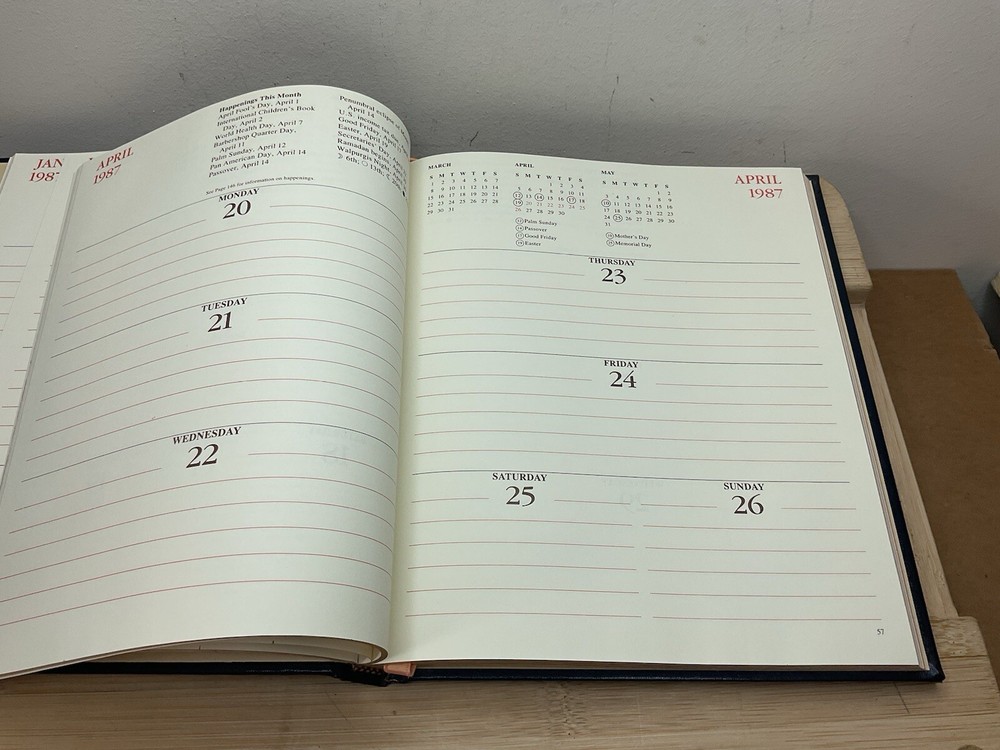 JAN
198
APRIL
1987
Happenings This Month
April Fool's Day, April 1
International Children's Book
Day, April 2
World Health Day, April 7
Barbershop Quarter Day,
April 11
Palm Sunday, April 12
Pan American Day, April 14
Passover, April 14
Penumbral eclipse of
April 14
U.S. income tax
Good Friday,
Easter, April
Secretaries' Day,
Ramadan begins,
Walpurgis Night,
6th, 13th,
See Page 146 for information on happenings
MONDAY
20
TUESDAY
21
WEDNESDAY
22
MARCH
S M T W T F S
1 2 3 4 5 6 7
8 9 10 11 12 13 14
15 16 17 18 19 20 21
22 23 24 25 26 27 28
29 30 31
APRIL
S M T W T F S
1 2 3 4
5 6 7 8 9 10 11
12 13 14 15 16 17 18
19 20 21 22 23 24 25
26 27 28 29 30
12 Palm Sunday
14 Passover
17 Good Friday
19 Easter
MAY
S M T W T F S
1 2
3 4 5 6 7 8 9
10 11 12 13 14 15 16
17 18 19 20 21 22 23
24 25 26 27 28 29 30
31
10 Mother's Day
25 Memorial Day
APRIL
1987
THURSDAY
23
FRIDAY
24
SATURDAY
25
SUNDAY
26
57